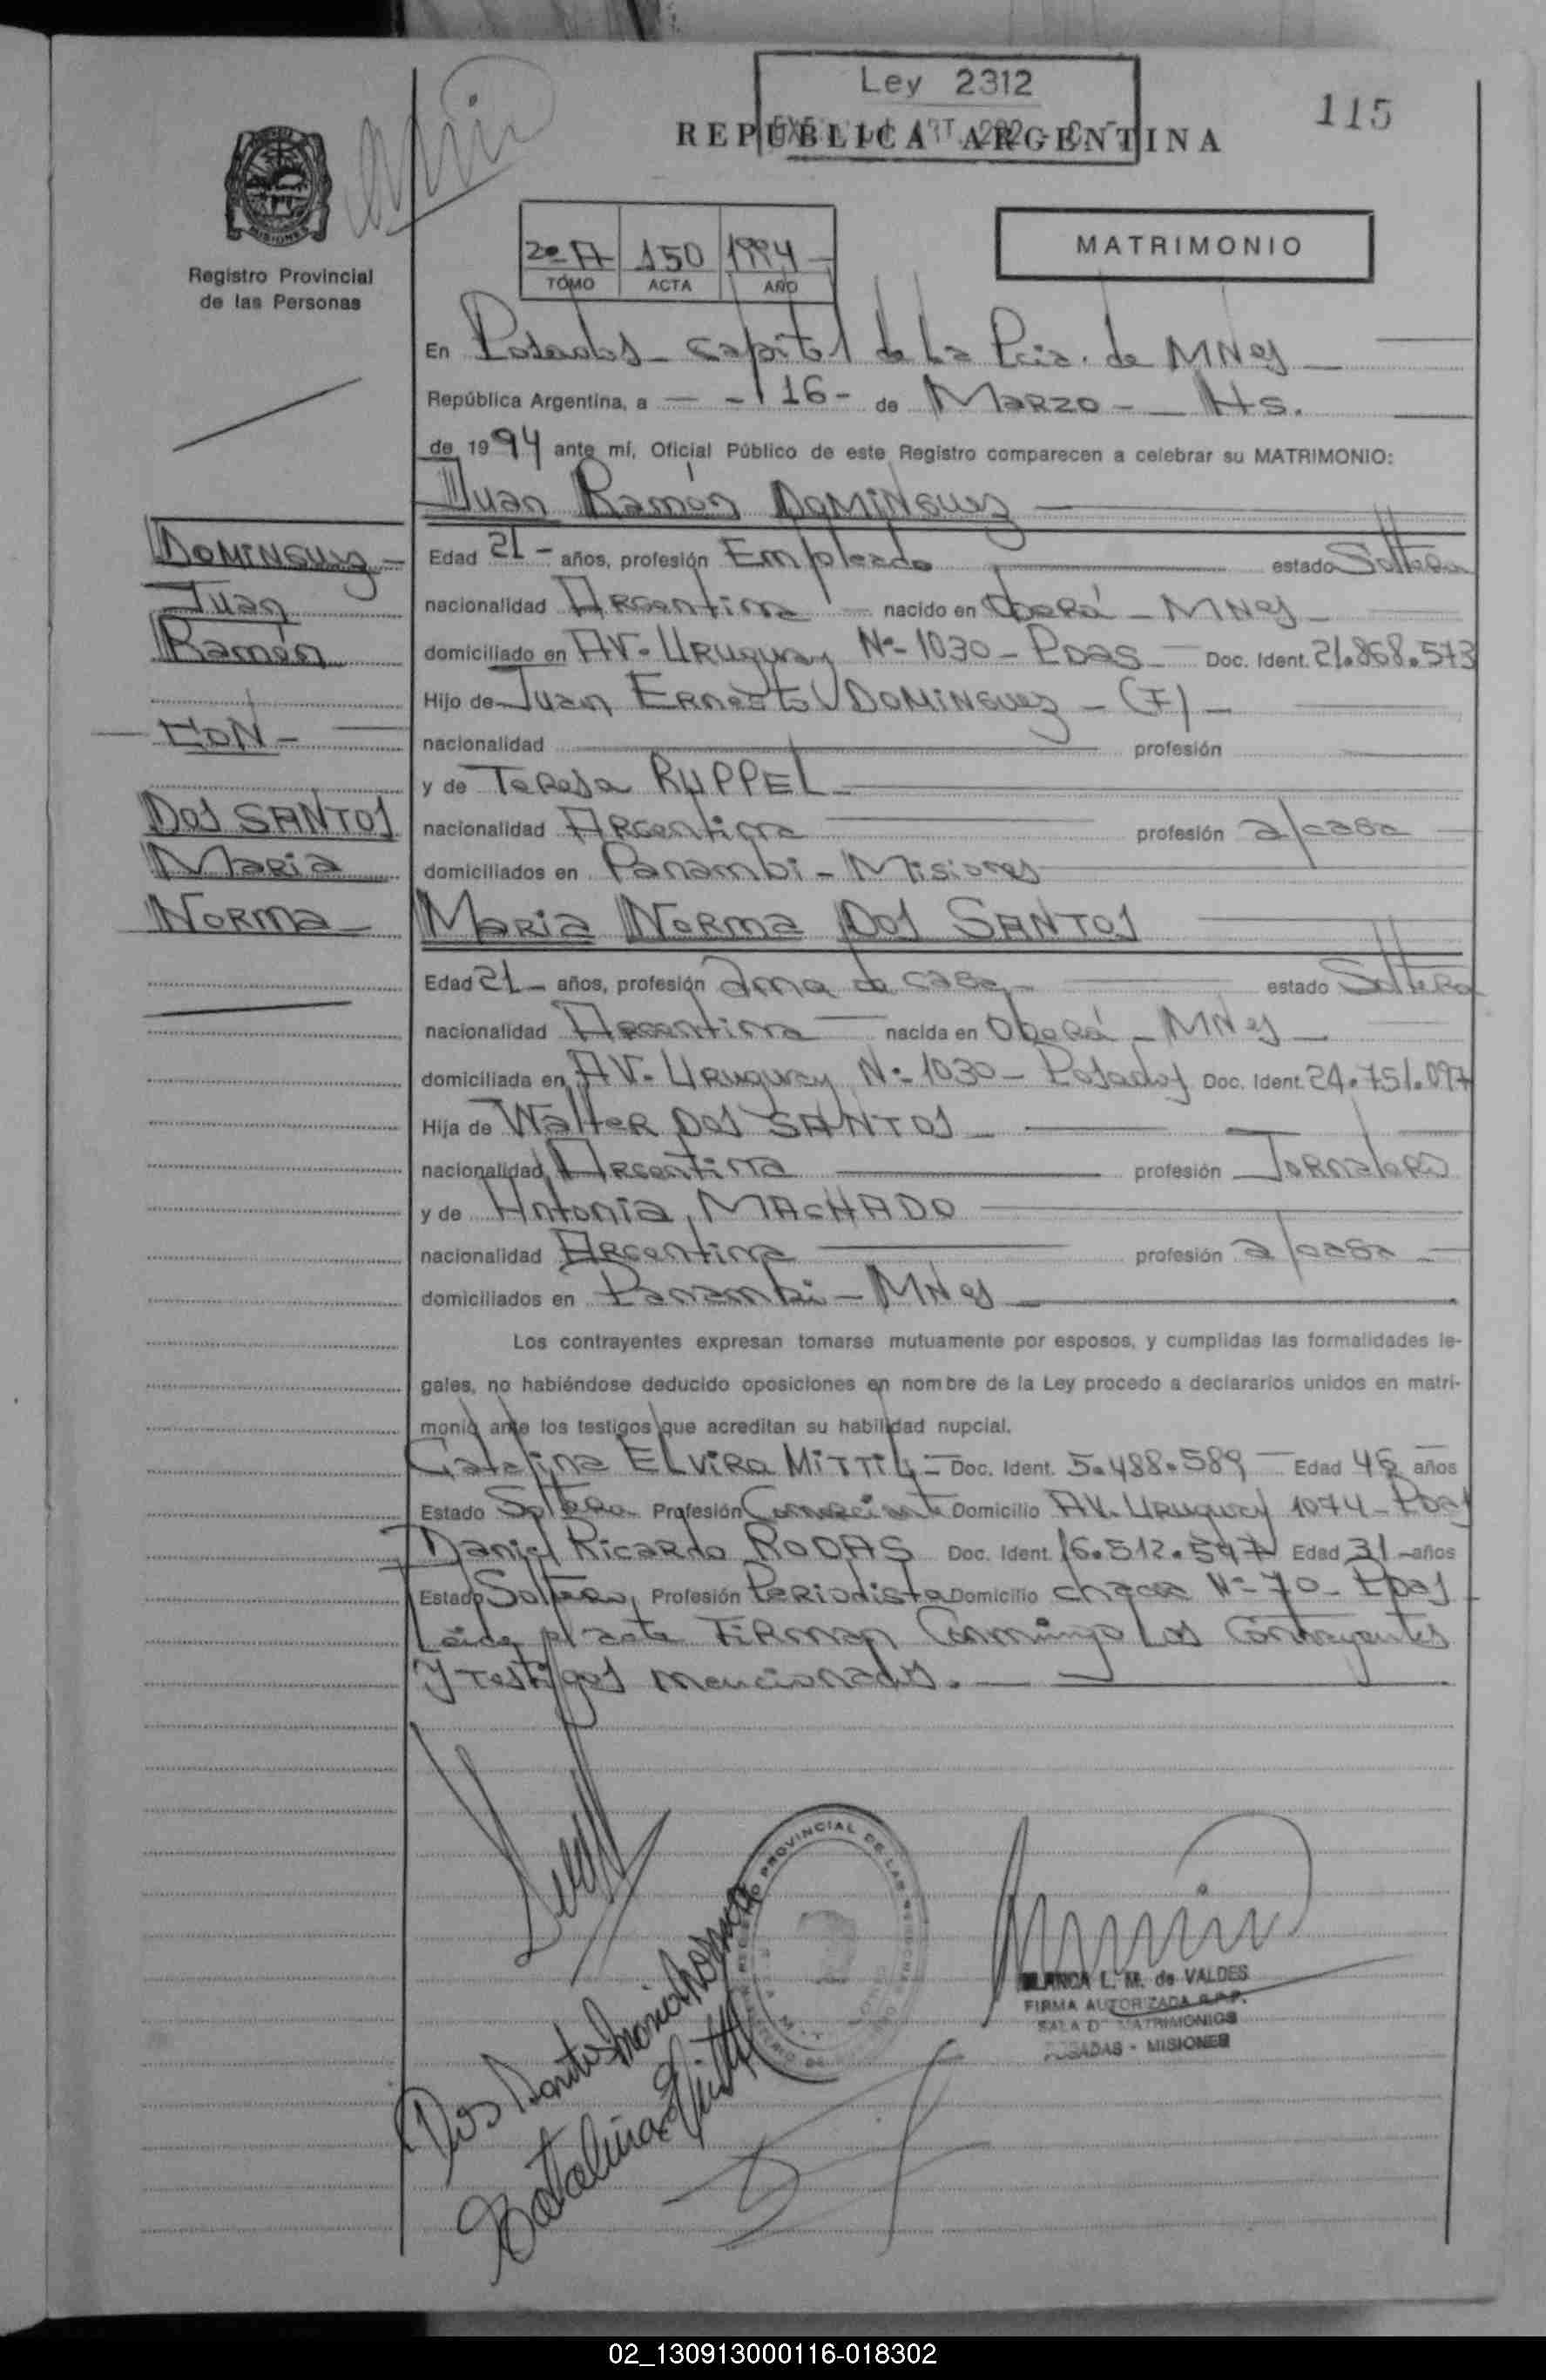 Ley 2312
115
REPUBLICA ARGENTINA
MISIONES
Registro Provincial
de las Personas
2º A 150 1994
TOMO ACTA AÑO
MATRIMONIO
En Posadas - Capital de La Pcia. de MNes
República Argentina, a 16 - de Marzo - Hs.
de 1994 ante mí, Oficial Público de este Registro comparecen a celebrar su MATRIMONIO:
Juan Ramón DOMINGUEZ
DOMINGUEZ -
Juan
Ramón
- CON -
DOS SANTOS
Maria
NORMA
Edad 21 - años, profesión Empleado estado Soltero
nacionalidad Argentina nacido en Oberá - MNes
domiciliado en AV. Uruguay Nº 1030 - Pdas - Doc. Ident. 21.868.573
Hijo de Juan Ernesto DOMINGUEZ - (F) -
nacionalidad profesión
y de Teresa RUPPEL
nacionalidad Argentina profesión a/casa
domiciliados en Panambi - Misiones
Maria Norma DOS SANTOS
Edad 21 - años, profesión Ama de casa estado Soltera
nacionalidad Argentina nacida en Oberá - MNes
domiciliada en AV. Uruguay Nº 1030 - Posadas Doc. Ident. 24.751.097
Hija de Walter DOS SANTOS
nacionalidad Argentina profesión Jornalero
y de Antonia MACHADO
nacionalidad Argentina profesión a/casa
domiciliados en Panambi - MNes
Los contrayentes expresan tomarse mutuamente por esposos, y cumplidas las formalidades le-
gales, no habiéndose deducido oposiciones en nombre de la Ley procedo a declararlos unidos en matri-
monio ante los testigos que acreditan su habilidad nupcial.
Catalina ELVIRA Doc. Ident. 5.488.589 Edad 46 años
Estado Soltera Profesión Comerciante Domicilio AV. Uruguay 1074 - Pdas
Daniel Ricardo RODAS Doc. Ident. 16.512.547 Edad 31 - años
Estado Soltero, Profesión Periodista Domicilio chacra Nº 70 - Pdas
Leida el acta Firman Conmigo Los Contrayentes
y Testigos mencionados.
PROVINCIAL DE LAS
Dos Santos Maria Norma
Catalina
BLANCA L. M. de VALDES
FIRMA AUTORIZADA R.P.P.
SALA DE MATRIMONIOS
POSADAS - MISIONES
02_130913000116-018302